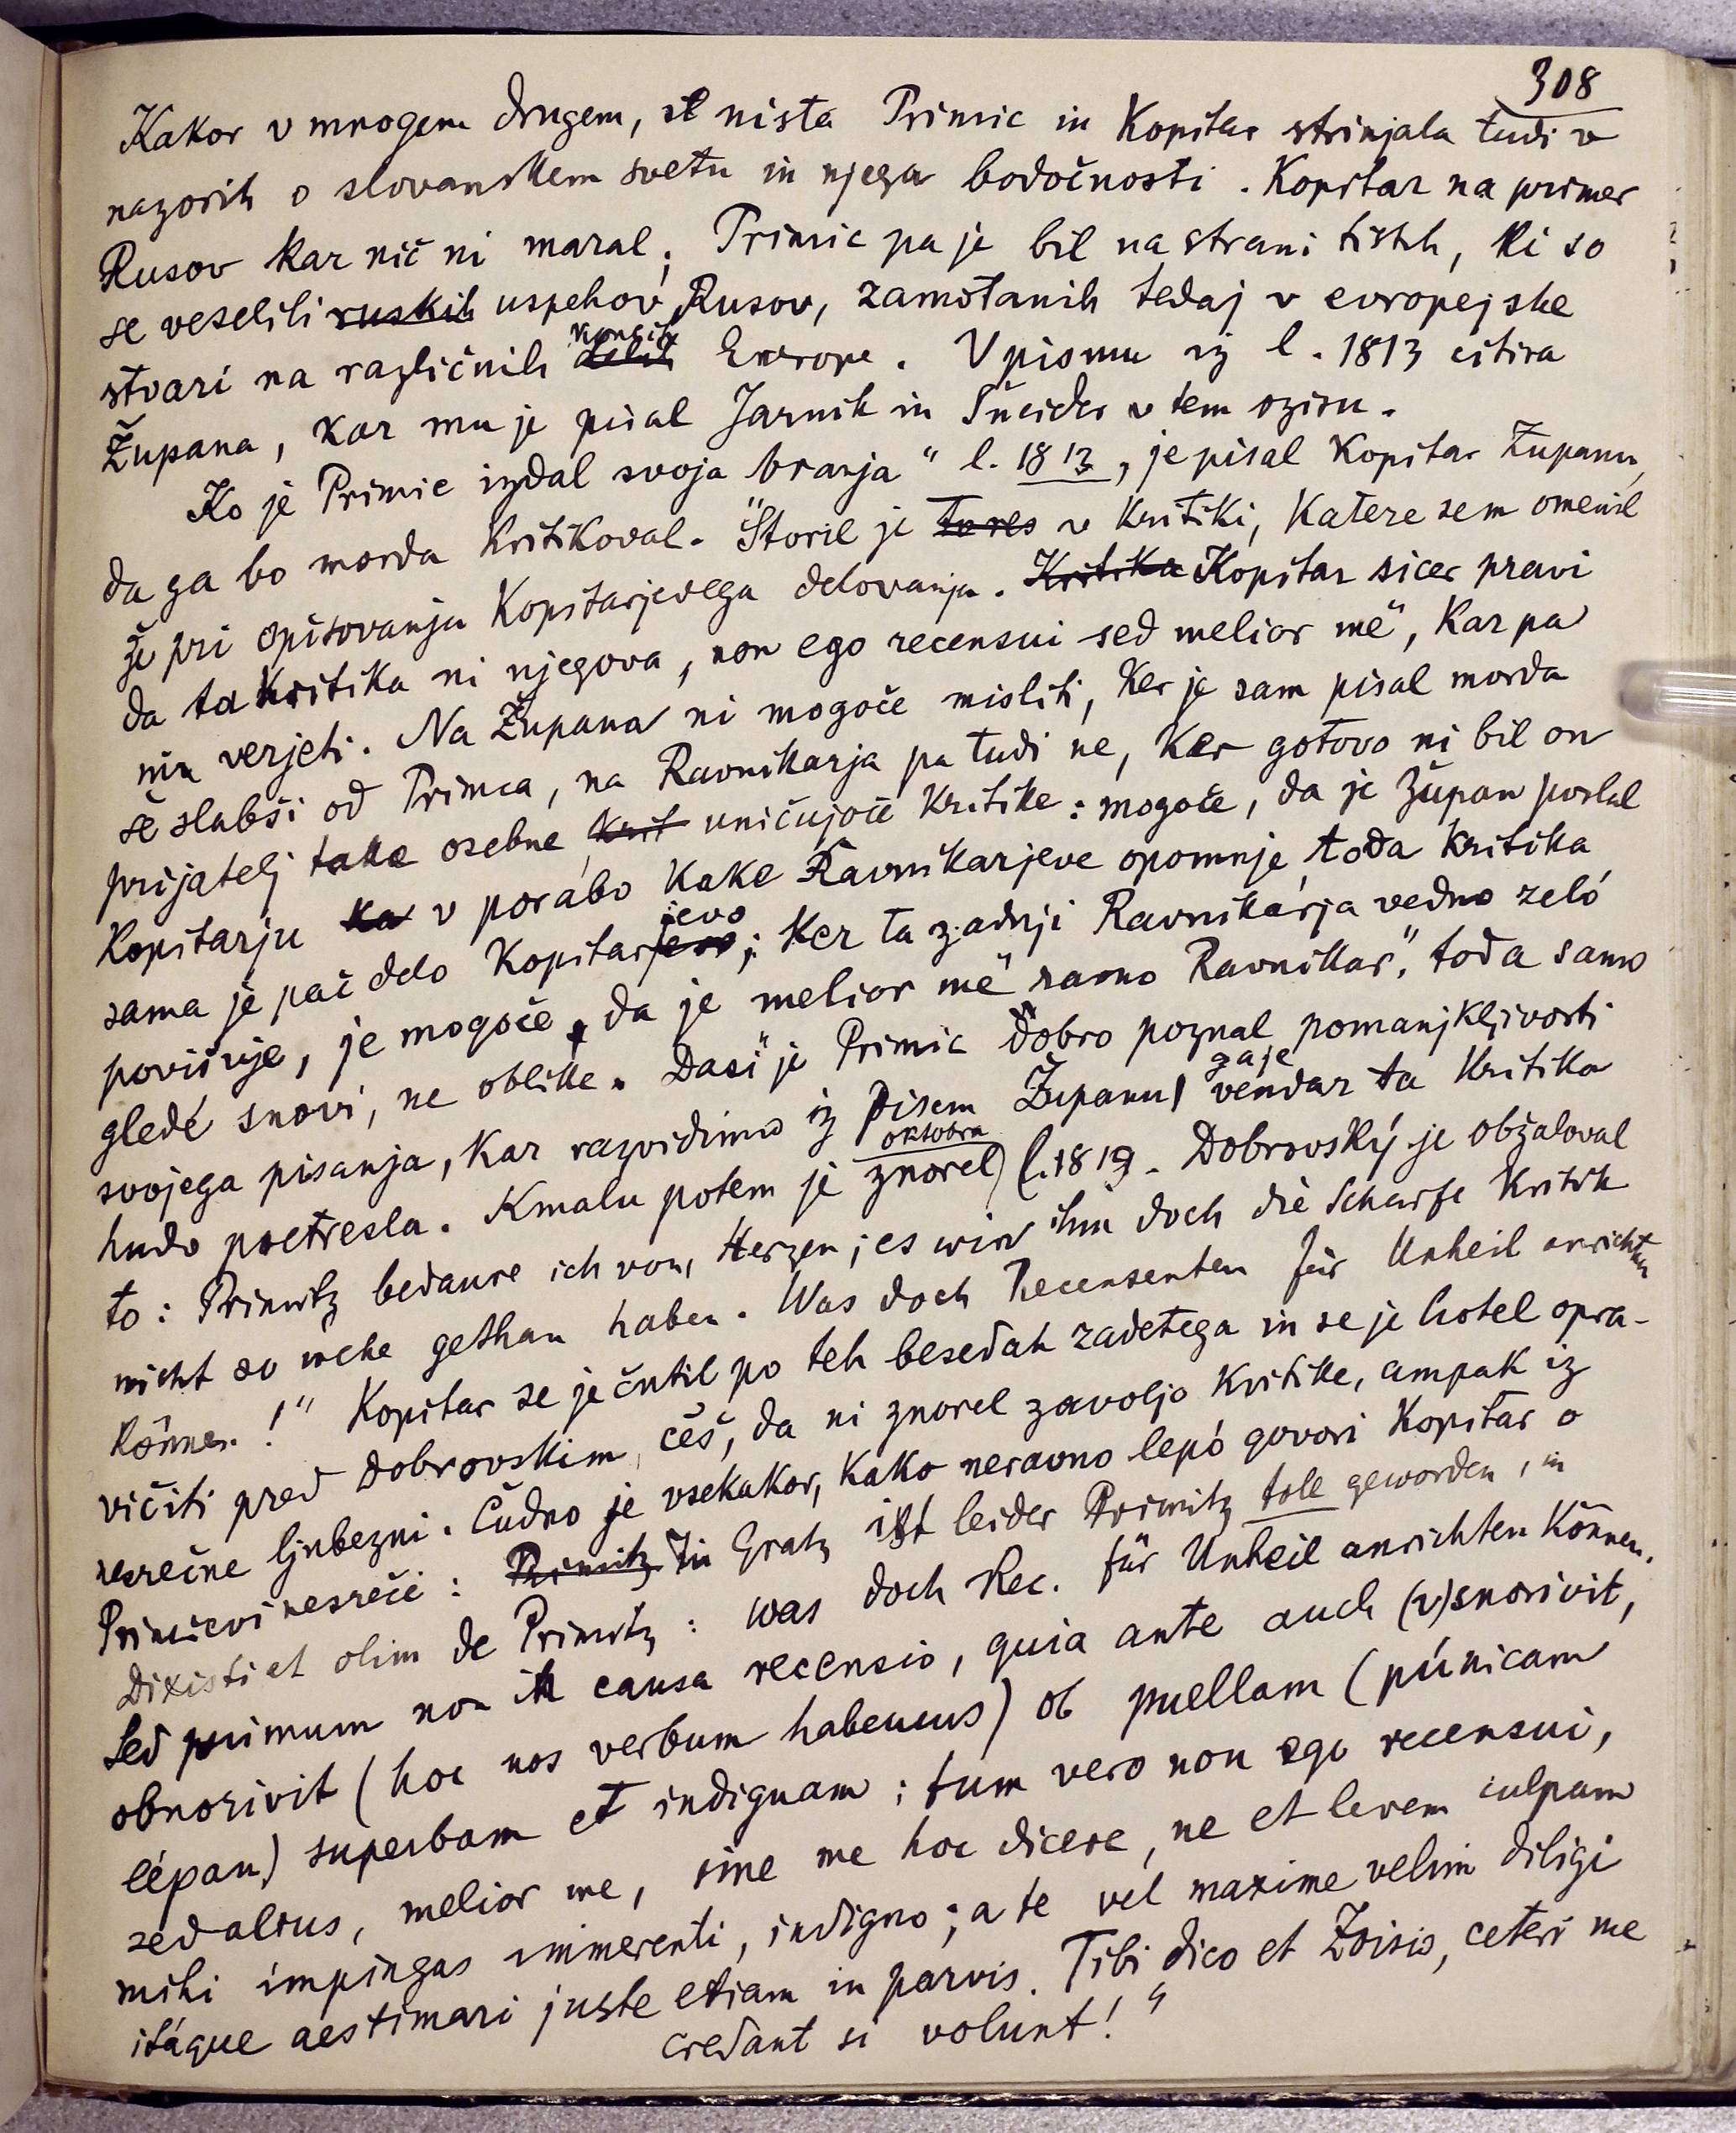 308
Kakor v mnogem drugem, st nista Primic in Kopitar strinjala tudi v
nazorih o slovanskem svetu in njega bodočnosti. Kopitar na primer
Rusov kar nič ni maral; Primic pa je bil na strani tistih, ki so
se veselili ruskih uspehov Rusov, zamotanih tedaj v evropejske
stvari na različnih koncih Evrope. V pismu iz l. 1813 citira
Župana, kar mu je pisal Jarnik in Šneider v tem oziru.
Ko je Primic izdal svoja branja" l. 1813, je pisal Kopitar Županu,
da ga bo morda kritikoval. Storil je to res v kritiki, katere sem omenil
že pri opisovanju Kopitarjevega delovanja. Kritika Kopitar sicer pravi
da ta kritika ni njegova, "non ego recensui sed melior me", kar pa
mu verjeti. Na Župana ni mogoče misliti, ker je sam pisal morda
še slabši od Primca, na Ravnikarja pa tudi ne, ker gotovo ni bil on
prijatelj take osebne krit uničujoče kritike: mogoče, da je Župan poslal
Kopitarju ka v porabo kake Ravnikarjeve opomnje, toda kritika
sama je pač delo Kopitarjevo; ker ta zadnji Ravnikarja vedno zeló
povišuje, je mogoče, da je melior me" ravno Ravnikar", toda samo
gledé snovi, ne oblike. Dasi je Primic dobro poznal pomanjkljivosti
svojega pisanja, kar razvidimo iz pisem Županu, vendar ga je ta kritika
hudo pretresla. Kmalu potem je znorel oktobra l. 1813. Dobrovský je obžaloval
to: Primitz bedaure ich vom Herzen; es wird ihm doch die Scharfe Kritik
nicht so wehe gethan haben. Was doch Recensenten für Unheil anrichten
können!" Kopitar se je čutil po teh besedah zadetega in se je hotel opra-
vičiti pred Dobrovskim, češ, da ni znorel zavoljo kritike, ampak iz
nesrečne ljubezni. Čudno je vsekakor, kako neravno lepó govori Kopitar o
Primičevi nesreči: Primitz Zu Gratz ist leider Primitz toll geworden, in
Dixisti et olim de Primitz: was doch Rec. für Unheil anrichten können.
Sed primum non in causa recensio, quia ante auch (v)snorivit,
obnorivit (hoc nos verbum habemus) ob puellam (púnicam
lépam) superbam et indignam; tum vero non ego recensui,
sed alius, melior me, sine me hoc dicere, ne et levem culpam
mihi impingas immerenti, indigno; a te vel maxime velim diligi
itáque aestimari juste etiam in parvis. Tibi dico et Zoisio, ceteri me
credant si volunt!"